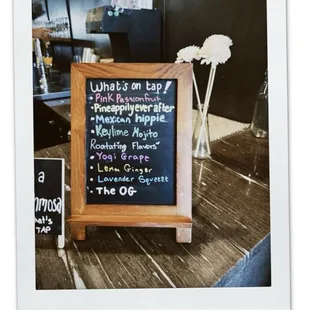 What's on tap!
• Pink Passionfruit
• Pineappilyever after
• Mexican hippie
• Keylime Mojito
Roatating Flavors"
• Yogi Grape
• Lemn Ginger
• Lavender Squeeze
• The OG
a
mosa
TAP